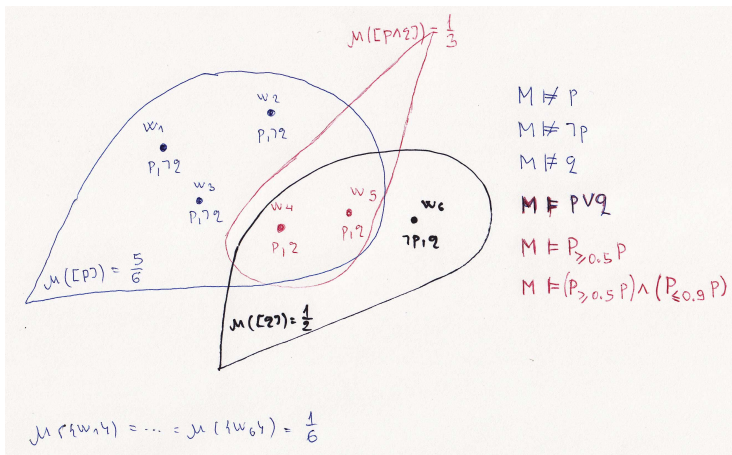 μ([p∧q])=1/3
w2
p,¬q
w1
p,¬q
w3
p,¬q
w4
p,q
w5
p,q
w6
¬p,q
μ([p]) = 5/6
μ([q])=1/2
M ⊭ p
M ⊭ ¬p
M ⊭ q
M ⊨ p∨q
M ⊨ P≥0.5 p
M ⊨(P≥0.5 p)∧(P≤0.9 p)
μ({w1}) = ... = μ({w6}) = 1/6